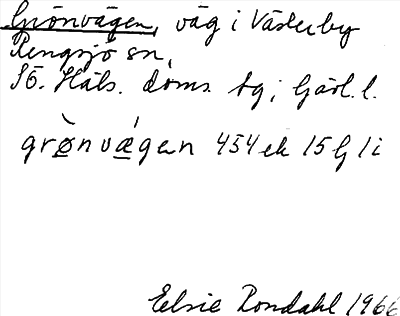 Grönvägen, väg i Västerby
Rengsjö sn,
SÖ. Häls. doms. tg; Gävl. l.
grø̀nvǽgen 454 ek 15 G 1 i
Elsie Rondahl 1966